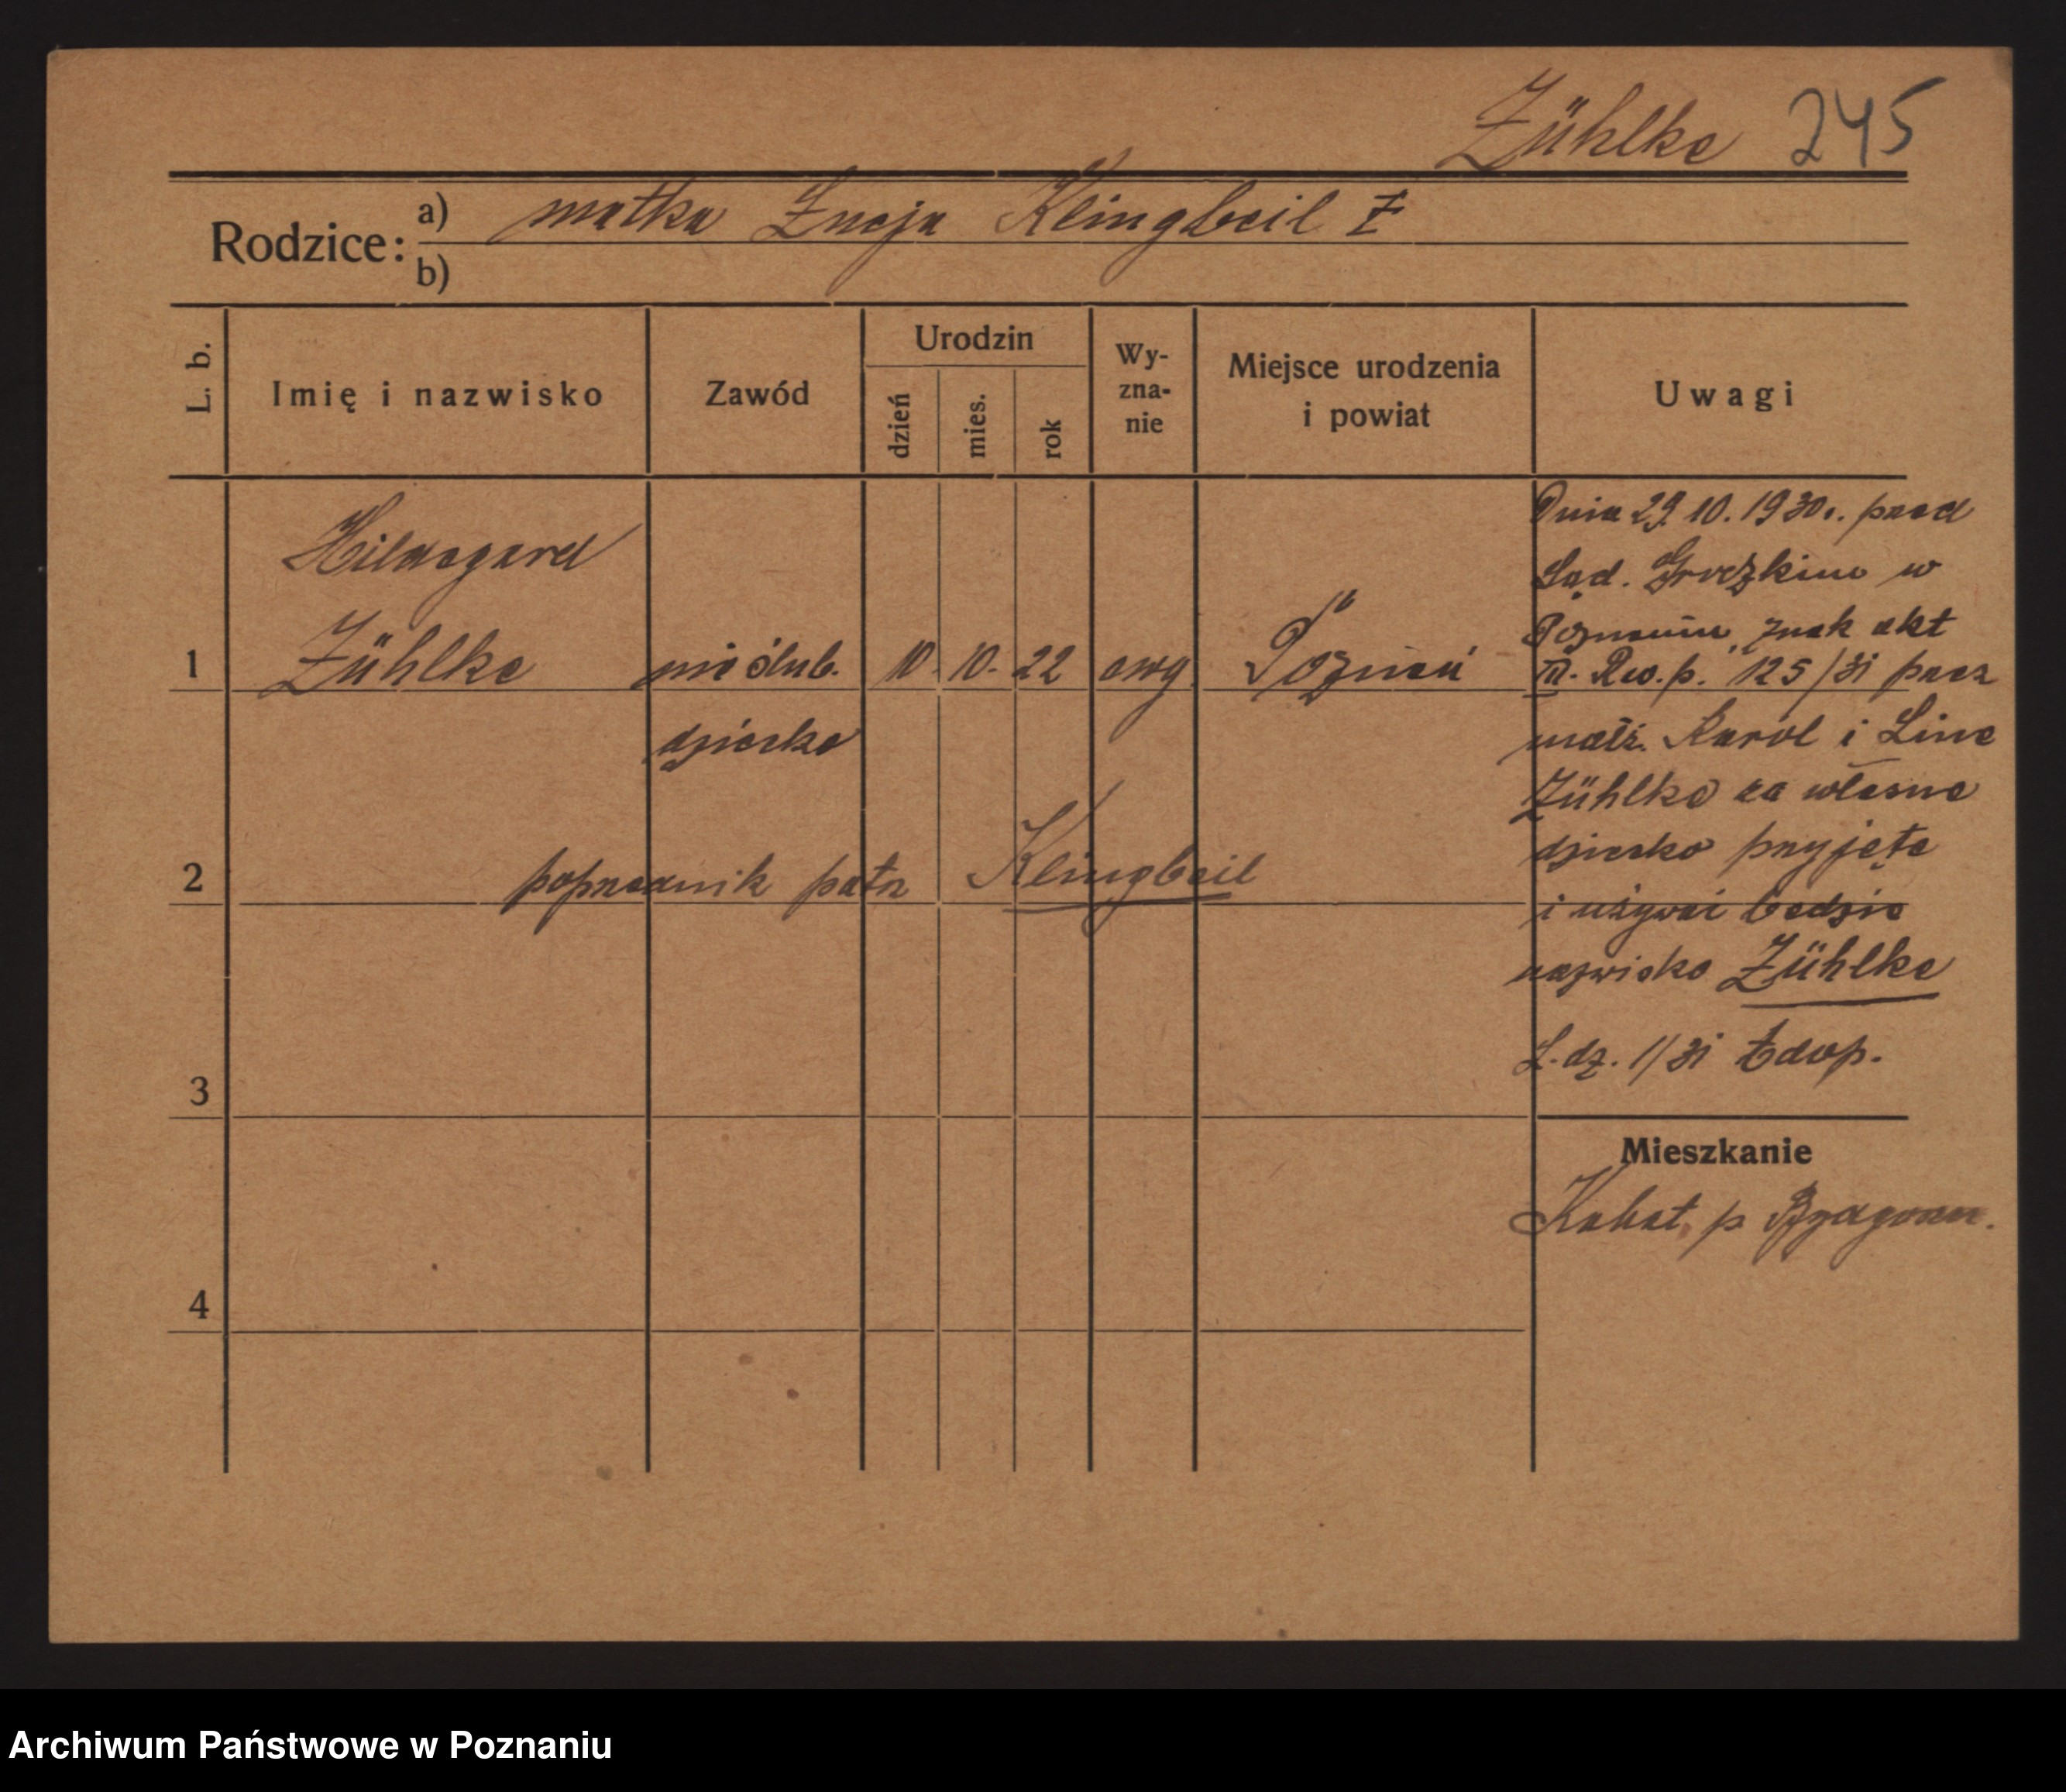 Zühlke 245
Rodzice: a) matka Łucja Klingbeil
b)
L. b. Imię i nazwisko Zawód Urodzin dzień mies. rok Wyznanie Miejsce urodzenia i powiat Uwagi
Hildegard
1 Zühlke nieślub. 10. 10. 22 ewg. Poznań
dziecko
2 poprzednik patrz Klingbeil
3
4
Dnia 29.10.1930r. przed
Sąd. Grodzkim w
Poznaniu, znak akt
III. Rew. p. 125/31 przez
małż. Karol i Line
Zühlke za własne
dziecko przyjęte
i używać będzie
nazwisko Zühlke
L. dz. 1/31
Mieszkanie
Kabat, p.
Archiwum Państwowe w Poznaniu